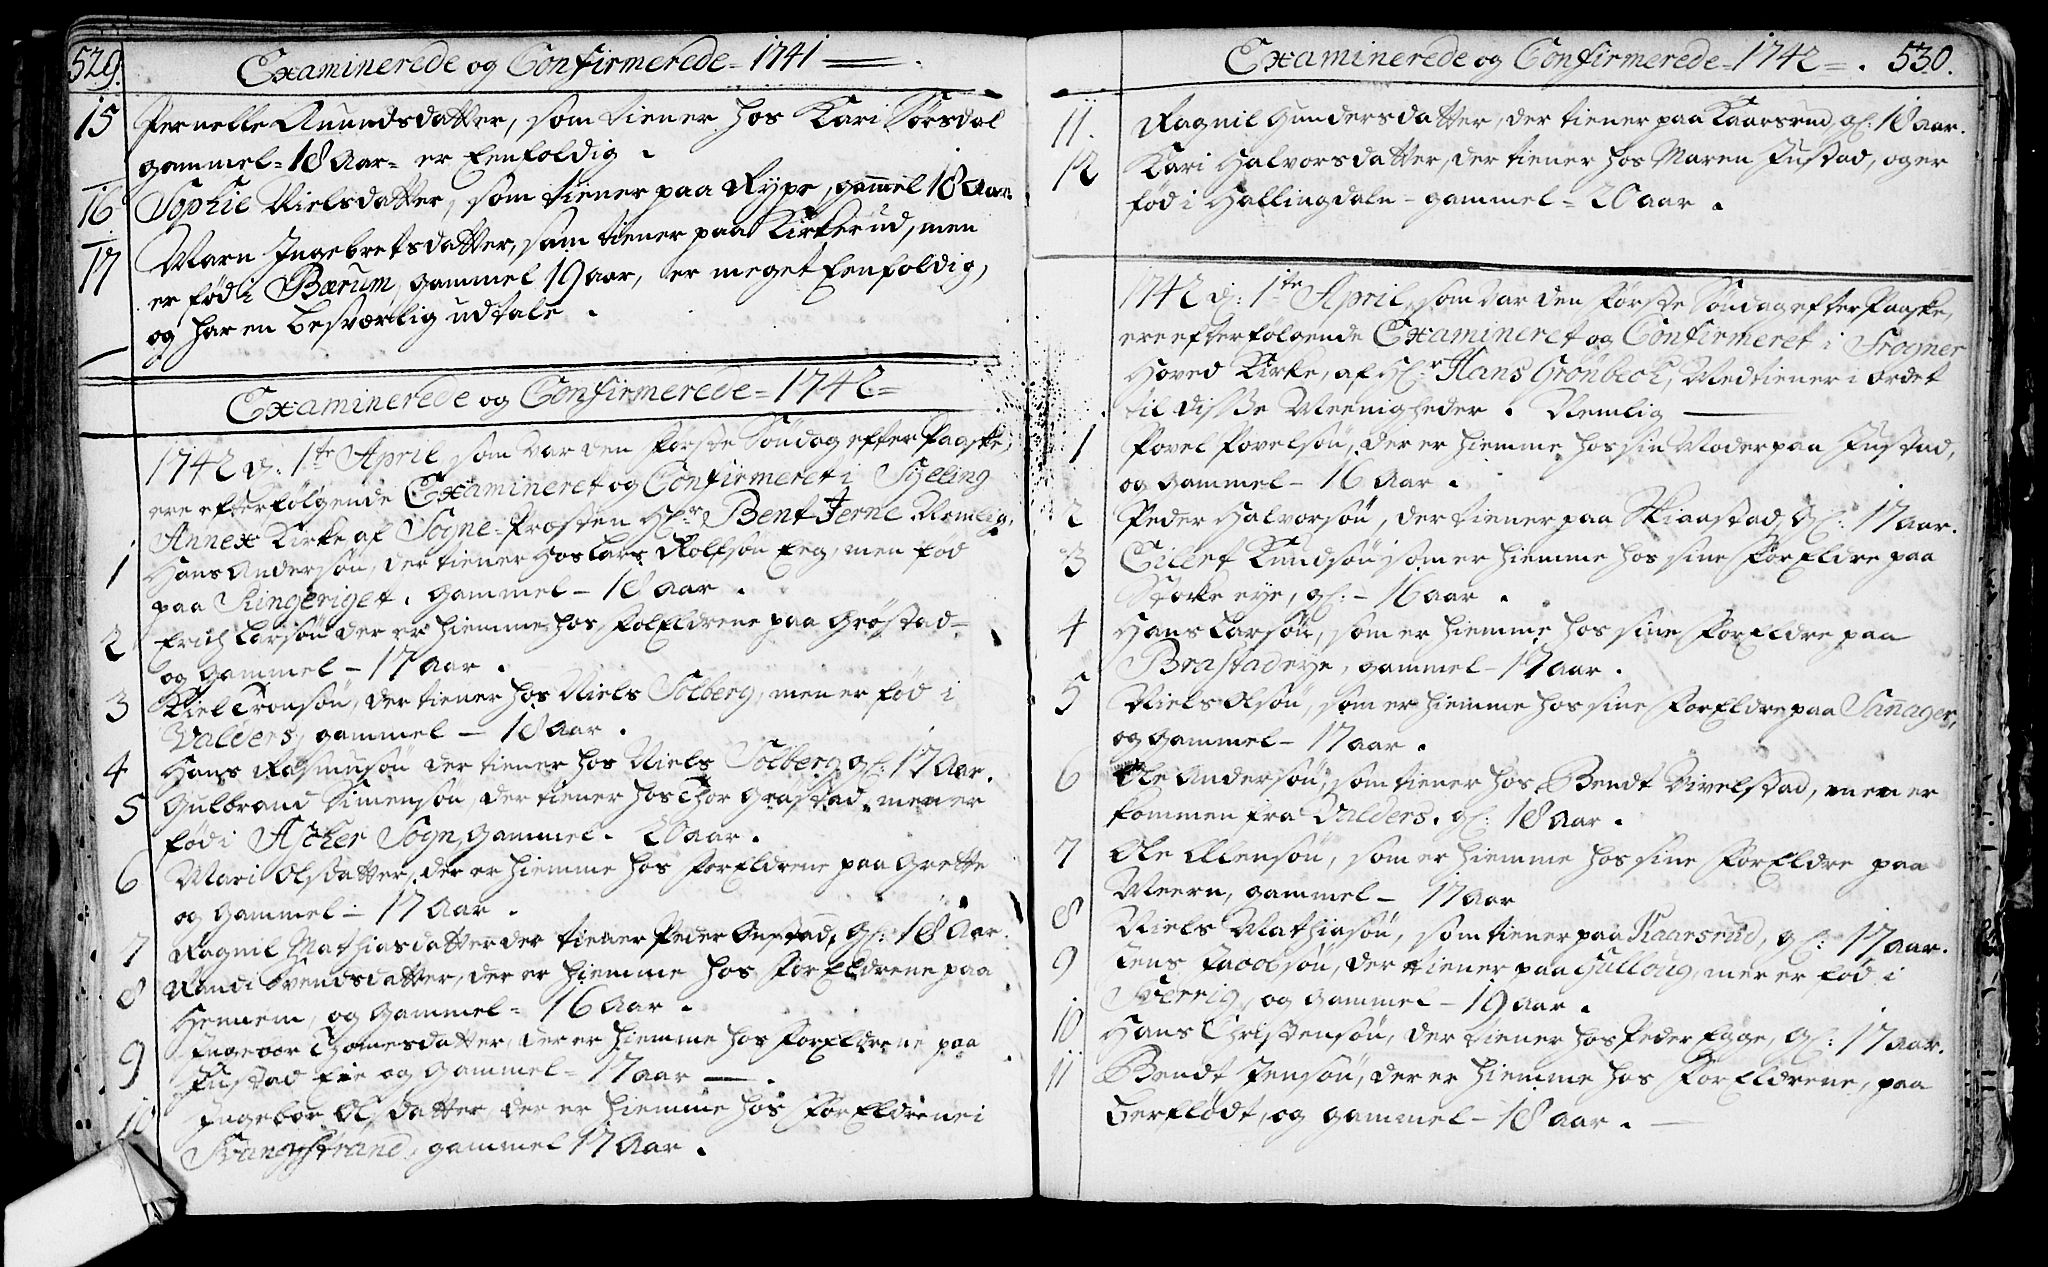 529.
Examinerede og Confirmerede = 1741
15 Pernelle Amundsdatter, som tiener hos Kari Sørsdal
gammel = 18 Aar = er Eenfoldig.
16 Sophie Nielsdatter, som tiener paa Rype, gammel 18 Aar.
17 Marn Ingebretsdatter, som tiener paa Kirkerud, men
er fød i Bærum, gammel 19 aar, er meget Eenfoldig,
og har en besværlig udtale.
Examinerede og Confirmerede = 1742 =
1742 d: 1te April som var den første Søndag efter Paaske,
ere efterfølgende Examineret og Confirmeret i Sylling
Annex Kirke af Sogne-Præsten Hr Bent Jerne Nemlig.
1 Hans Andersøn, der tiener hos Lars Rolfsøn Eeg, men fød
paa Ringeriget. gammel - 18 aar.
2 Erich Larsøn der er hiemme hos ForEldrene paa Grøstad -
og gammel - 17 aar.
3 Kiel Tronsøn, der tiener hos Niels Solberg, men er fød i
Valders, gammel - 18 aar.
4 Hans Rasmusøn der tiener hos Niels Solberg gl: 17 Aar.
5 Gulbrand Simensøn, der tiener hos Thor Grøstad, men er
fød i Acher Sogn, gammel. 20 aar.
6 Mari Olsdatter, der er hiemme hos ForEldrene paa Grette
og gammel - 17 Aar.
7 Ragnil Mathiasdatter der tiener Peder Onstad, gl: 18 Aar.
8 Randi Svendsdatter, der er hiemme hos ForEldrene paa
Hennem, og gammel = 16 Aar.
9 Ingebor Thomesdatter, der er hiemme hos ForEldrene paa
Justad Eie og gammel = 17 aar -.
10 Ingebor Olsdatter der er hiemme hos ForEldrene i
Svangstrand, gammel 17 Aar.
Examinerede og Confirmerede = 1742 =. 530.
11. Ragnil Gundersdatter, der tiener paa Kaarsrud, gl: 18 aar.
12 Kari Halvorsdatter, der tiener hos Maren Justad, og er
fød i Hallingdalen - gammel = 20 aar.
1742 d: 1te April, som var den første Søndag efter Paaske,
ere efterfølgende Examineret og Confirmeret i Frogner
Hoved Kirke, af Hr Hans Grønbech, Medtiener i Ordet
til disse Meenigheder. Nemlig
1 Povel Povelsøn, der er hiemme hos sin Moder paa Justad,
og gammel - 16 Aar.
2 Peder Halvorsøn, der tiener paa Skiaastad, gl: 17 aar.
3 Eilert Knudsøn som er hiemme hos sine ForEldre paa
Stokke eye, gl: - 16 aar.
4 Hans Larsøn, som er hiemme hos sine ForEldre paa
Brastad eye, gammel - 17 aar.
5 Niels Olsøn, som er hiemme hos sine ForEldre paa Sanager,
og gammel - 17 aar.
6 Ole Andersøn, som tiener hos Bendt Vivelstad, men er
kommen fra Valders. gl: 18 Aar.
7 Ole Allensøn, som er hiemme hos sine ForEldre paa
Meern, gammel - 17 aar
8 Niels Mathiasøn, som tiener paa Kaarsrud, gl: 17 aar.
9 Jens Jacobsøn, der tiener paa Gulloug, men er fød i
Sverrig, og gammel - 19 aar.
10 Hans Christensøn, der tiener hos Peder Egge, gl: 17 aar.
11 Bendt Jensøn, der er hiemme hos ForEldrene, paa
Gerflødt, og gammel - 18 aar.